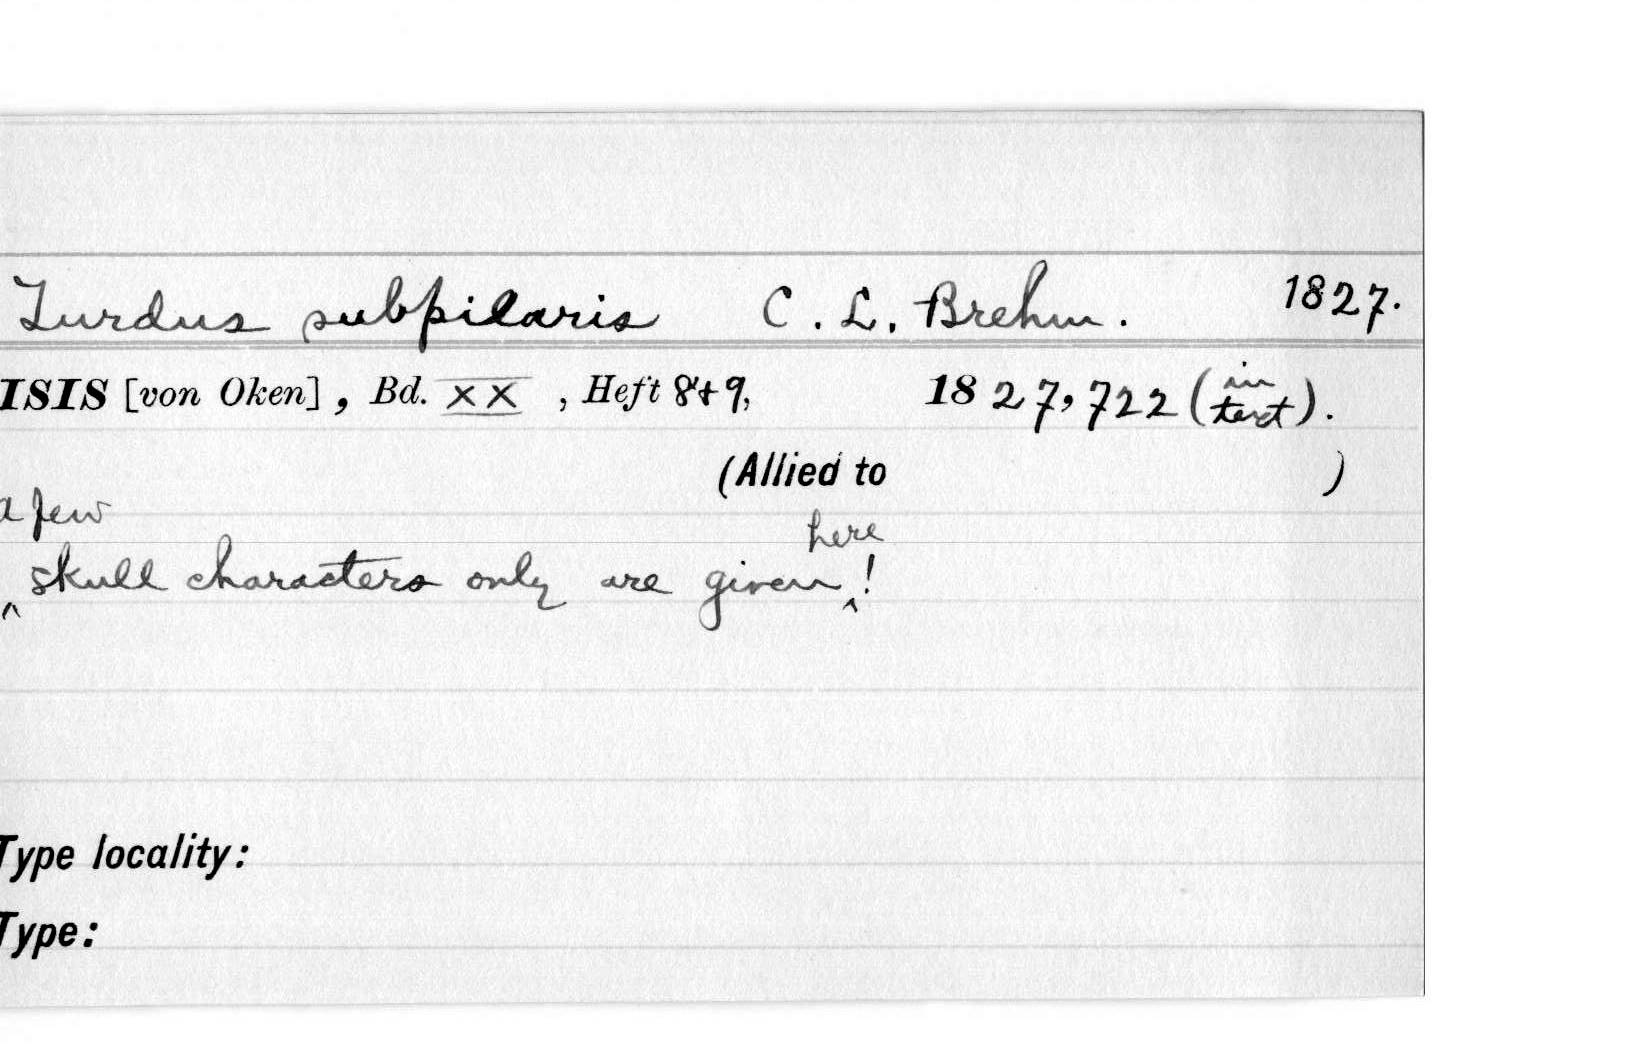 Turdus subpilaris C. L. Brehm. 1827.
ISIS [von Oken], Bd. XX, Heft 8+9, 1827, 722 (in text).
(Allied to )
a few
here
^ skull characters only are given ^!
Type locality:
Type: